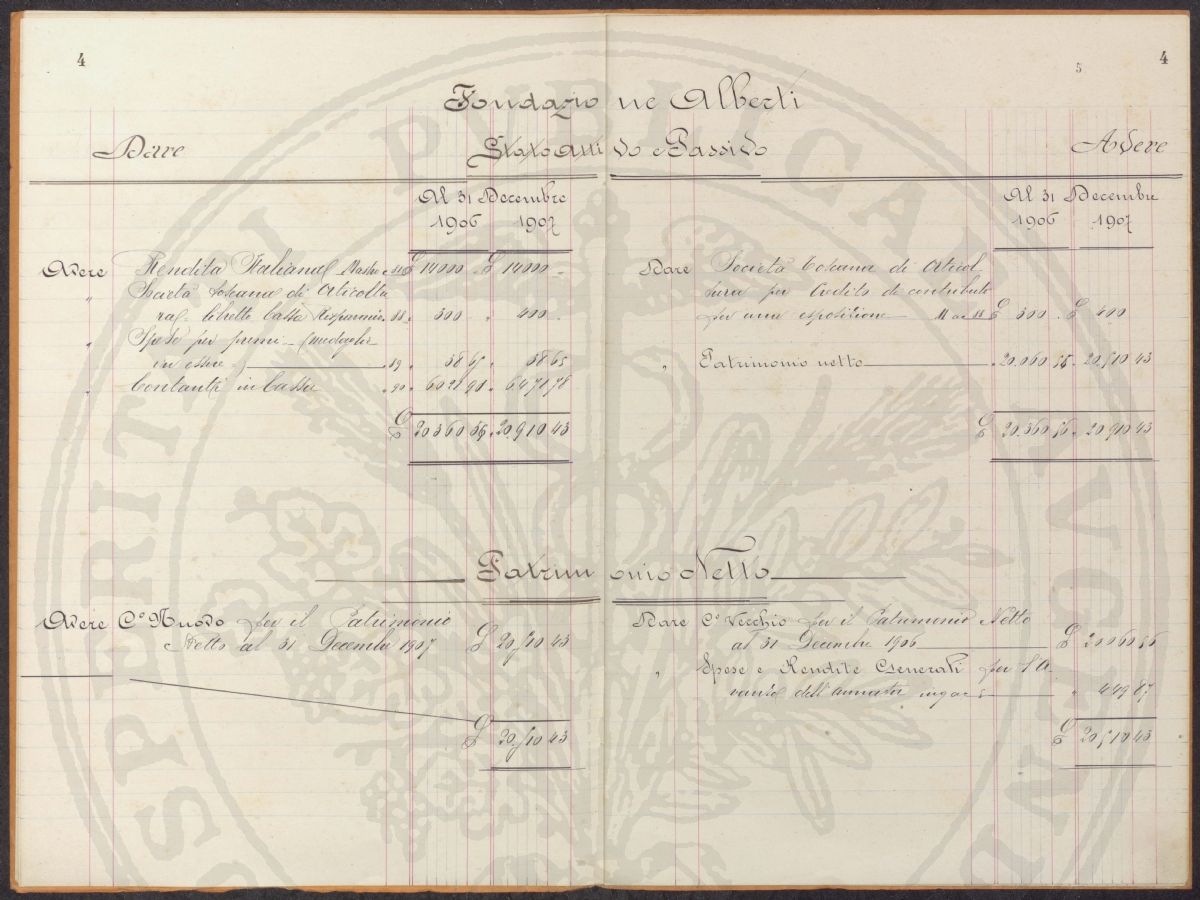 4
5
4
Fondazione Alberti
Dare
Stato Attivo e Passivo
Avere
Al 31 Decembre
1906 1907
Al 31 Decembre
1906 1907
Avere Rendita Italiana Mastro 14000 - £ 14000 -
" Società toscana di Orticoltu
ra libretto Cassa Risparmio 88 " 300 " 400 -
" Spese per premi (medaglie
in essere) 89 " 38 65 " 38 65
" Contanti in Cassa " 90 " 6021 91 " 6471 78
£ 20360 56 " 20910 43
Dare Società toscana di Orticol
tura per Credito di contributo
per una esposizione 88 £ 300 - £ 400
" Patrimonio netto " 20.060 56 " 20510 43
£ 20.360 56 " 20.910 43
Patrimonio Netto
Avere Cº Nuovo per il Patrimonio
Netto al 31 Decembre 1907 £ 20510 43
£ 20510 43
Dare Cº Vecchio per il Patrimonio Netto
al 31 Decembre 1906 £ 20060 56
" Spese e Rendite Generali per l'A
vanzo dell'annata " 449 87
£ 20510 43
SPERITI PUBLICAE